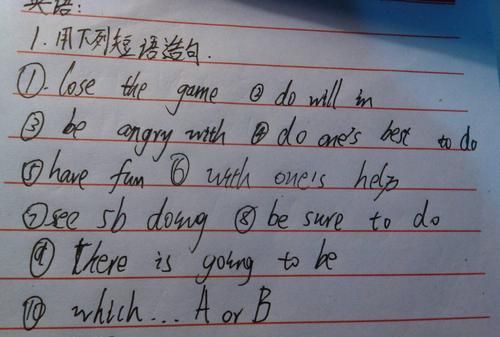 英语:
1. 用下列短语造句.
①. lose the game ② do will in
③ be angry with ④ do one's best to do
⑤ have fun ⑥ with one's help
⑦ see sb doing ⑧ be sure to do
⑨ There is going to be
⑩ which... A or B